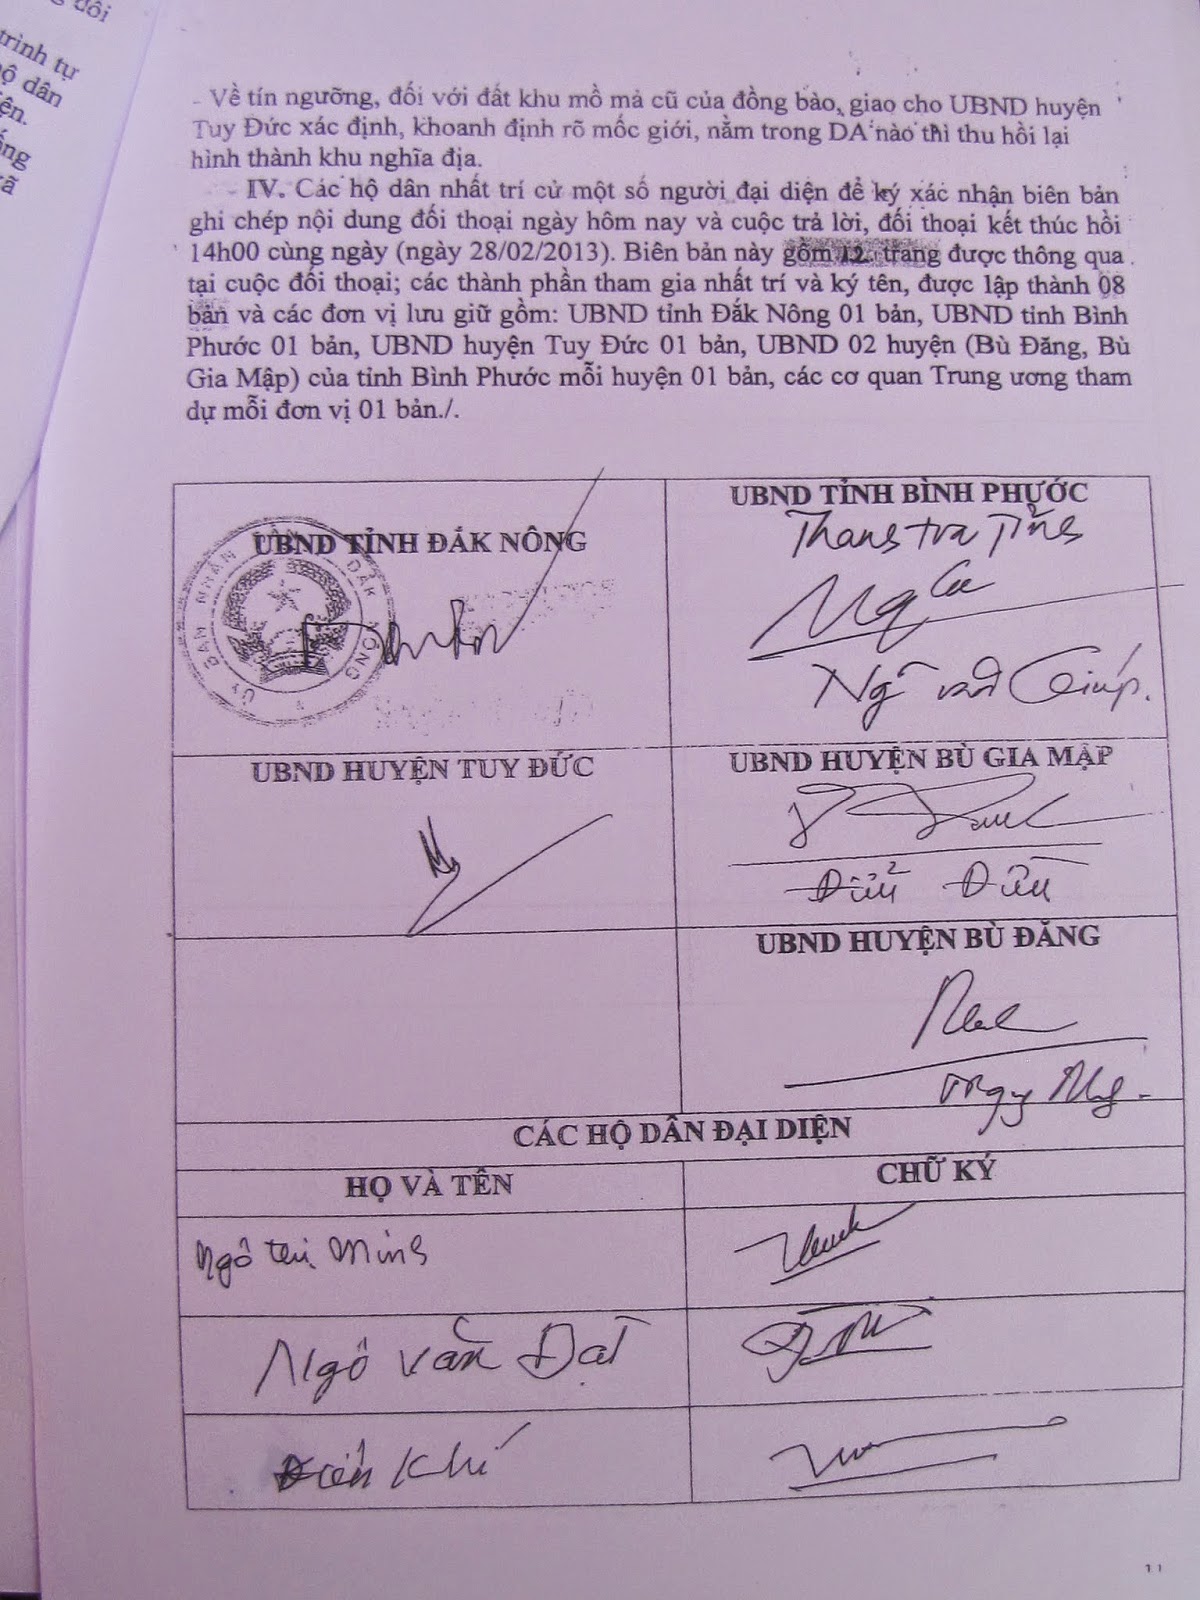 đôi
trình tự
hộ dân
ên.
- Về tín ngưỡng, đối với đất khu mồ mả cũ của đồng bào, giao cho UBND huyện
Tuy Đức xác định, khoanh định rõ mốc giới, nằm trong DA nào thì thu hồi lại
hình thành khu nghĩa địa.
- IV. Các hộ dân nhất trí cử một số người đại diện để ký xác nhận biên bản
ghi chép nội dung đối thoại ngày hôm nay và cuộc trả lời, đối thoại kết thúc hồi
14h00 cùng ngày (ngày 28/02/2013). Biên bản này gồm 12 trang được thông qua
tại cuộc đối thoại; các thành phần tham gia nhất trí và ký tên, được lập thành 08
bản và các đơn vị lưu giữ gồm: UBND tỉnh Đắk Nông 01 bản, UBND tỉnh Bình
Phước 01 bản, UBND huyện Tuy Đức 01 bản, UBND 02 huyện (Bù Đăng, Bù
Gia Mập) của tỉnh Bình Phước mỗi huyện 01 bản, các cơ quan Trung ương tham
dự mỗi đơn vị 01 bản./.
UBND TỈNH ĐẮK NÔNG
ỦY BAN NHÂN DÂN ĐẮK NÔNG
UBND TỈNH BÌNH PHƯỚC
Thanh tra Tỉnh
Ngô văn Giúp.
UBND HUYỆN TUY ĐỨC
UBND HUYỆN BÙ GIA MẬP
Điểu Điều
UBND HUYỆN BÙ ĐĂNG
CÁC HỘ DÂN ĐẠI DIỆN
HỌ VÀ TÊN
CHỮ KÝ
Ngô thị Minh
Ngô Văn Đạt
Điểu Khí
11